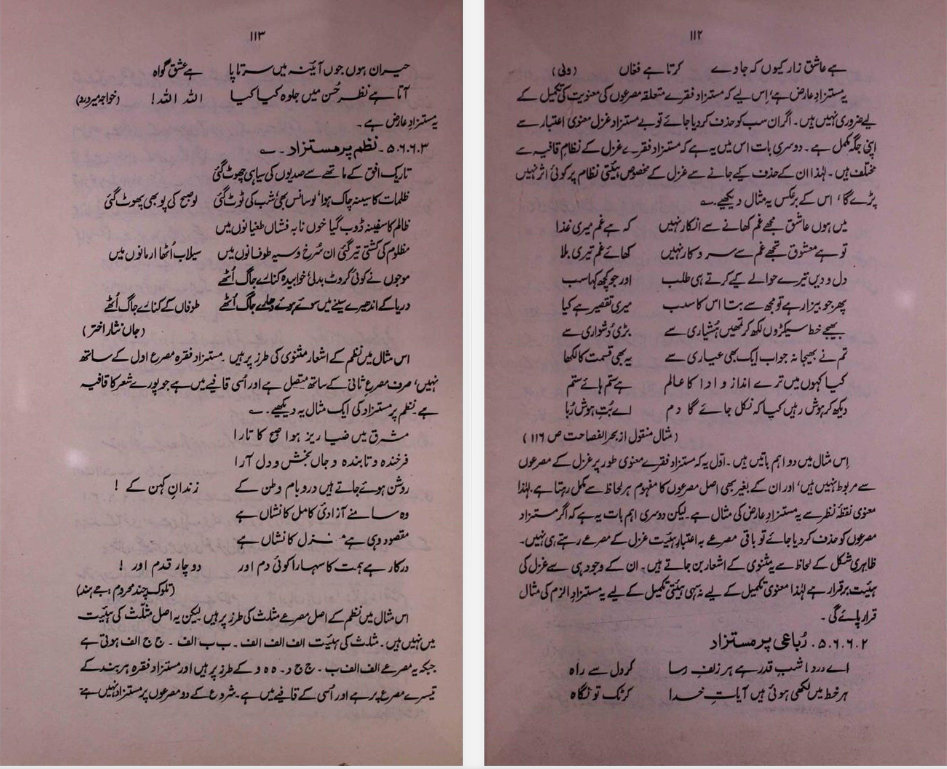 ۱۱۲
ہے عاشق زار کیوں کہ جاوے کرتا ہے فغاں (ولی)
یہ مستزاد عارض ہے، اس لیے کہ مستزاد فقرے متعلقہ مصرعوں کی معنویت کی تکمیل کے
لیے ضروری نہیں ہیں۔ اگر ان سب کو حذف کر دیا جائے تو بے مستزاد غزل معنوی اعتبار سے
اپنی جگہ مکمل ہے۔ دوسری بات اس میں یہ ہے کہ مستزاد فقرے غزل کے نظامِ قافیہ سے
مختلف ہیں۔ لہٰذا ان کے حذف کیے جانے سے غزل کے مخصوص ہیئتی نظام پر کوئی اثر نہیں
پڑے گا، اس کے برعکس یہ مثال دیکھیے۔
میں ہوں عاشق مجھے غم کھانے سے انکار نہیں کہ ہے غم میری غذا
تو ہے معشوق تجھے غم سے سروکار نہیں کھائے غم تیری بلا
دل و دیں تیرے حوالے کیے کرتے ہی طلب اور جو کچھ کہا سب
پھر جو بیزار ہے تو مجھ سے بتا اس کا سبب میری تقصیر ہے کیا
بھیجے خط سیکڑوں لکھ کر تمھیں ہشیاری سے بڑی دشواری سے
تم نے بھیجا نہ جواب ایک بھی عیاری سے یہ بھی قسمت کا لکھا
کیا کہوں میں ترے انداز و ادا کا عالم ہے ستم ہائے ستم
دیکھ کر ہوش رہیں کیا کہ نکل جائے گا دم اے بُتِ ہوش رُبا
(مثال منقول از بحر الفصاحت ص ۱۱۶)
اس مثال میں دو اہم باتیں ہیں۔ اوّل یہ کہ مستزاد فقرے معنوی طور پر غزل کے مصرعوں
سے مربوط نہیں ہیں، اور ان کے بغیر بھی اصل مصرعوں کا مفہوم ہر لحاظ سے مکمل رہتا ہے، لہٰذا
معنوی نقطۂ نظر سے یہ مستزاد عارض کی مثال ہے۔ لیکن دوسری اہم بات یہ ہے کہ اگر مستزاد
مصرعوں کو حذف کر دیا جائے تو باقی مصرعے بہ اعتبار ہیئت غزل کے مصرعے رہتے ہی نہیں۔
ظاہری شکل کے لحاظ سے یہ مثنوی کے اشعار بن جاتے ہیں۔ ان کے وجود ہی سے غزل کی
ہیئت برقرار ہے لہٰذا معنوی تکمیل کے لیے نہ سہی ہیئتی تکمیل کے لیے یہ مستزاد الزم کی مثال
قرار پائے گی۔
۵.۶.۶.۲۔ رُباعی پر مستزاد
اے درد! شب قدر ہے ہر زلفِ رسا کر دل سے راہ
ہر خط میں لکھی ہوئی ہیں آیاتِ خدا کر ٹک تو نگاہ
۱۱۳
حیراں ہوں جوں آئنہ میں سر تا پا ہے عشق گواہ
آتا ہے نظر حُسن میں جلوہ کیا کیا اللہ اللہ! (خواجہ میر درد)
یہ مستزاد عارض ہے۔
۵.۶.۶.۳۔ نظم پر مستزاد۔
تاریک افق کے ماتھے سے صدیوں کی سیاہی چھوٹ گئی
ظلمات کا سینہ چاک ہوا، لو سانس بھی شب کی ٹوٹ گئی لو صبح کی پو بھی پھوٹ گئی
ظالم کا سفینہ ڈوب گیا خوں نابہ فشاں طغیانوں میں
مظلوم کی کشتی تیر گئی ان سُرخ و سیہ طوفانوں میں سیلاب اُٹھا ارمانوں میں
موجوں نے کوئی کروٹ بدلی خوابیدہ کنارے جاگ اُٹھے
دریا کے اندھیرے سینے میں سوئے ہوئے دھارے جاگ اُٹھے طوفاں کے کنارے جاگ اُٹھے
(جاں نثار اختر)
اس مثال میں نظم کے اشعار مثنوی کی طرز پر ہیں۔ مستزاد فقرہ مصرع اول کے ساتھ
نہیں، صرف مصرع ثانی کے ساتھ متصل ہے اور اُسی قافیے میں ہے جو پورے شعر کا قافیہ
ہے۔ نظم پر مستزاد کی ایک مثال یہ دیکھیے۔
مشرق میں ضیا ریز ہوا صبح کا تارا
فرخندہ و تابندہ و جاں بخش و دل آرا
روشن ہوئے جاتے ہیں در و بام وطن کے زندانِ کہن کے!
وہ سامنے آزادیِ کامل کا نشاں ہے
مقصود وہی ہے منزل کا نشاں ہے
درکار ہے ہمت کا سہارا کوئی دم اور دو چار قدم اور!
(تلوک چند محروم، جے ہند)
اس مثال میں نظم کے اصل مصرعے مثلث کی طرز پر ہیں لیکن یہ اصل مثلّث کی ہیئت
میں نہیں ہیں۔ مثلث کی ہیئت الف الف الف۔ ب ب الف۔ ج ج الف ہوتی ہے
جبکہ یہ مصرعے الف الف ب۔ ج ج د۔ ہ ہ و کے طرز پر ہیں اور مستزاد فقرہ ہر بند کے
تیسرے مصرع پر ہے اور اُسی کے قافیے میں ہے۔ شروع کے دو مصرعوں پر مستزاد نہیں ہے